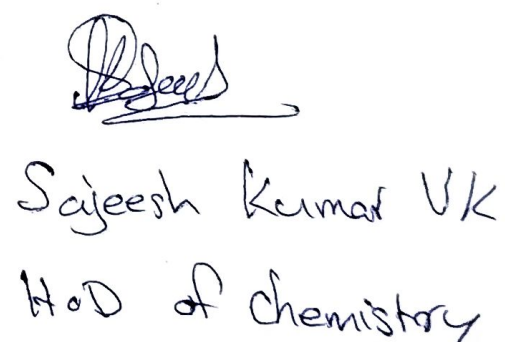 Sajeesh Kumar VK
HoD of Chemistry